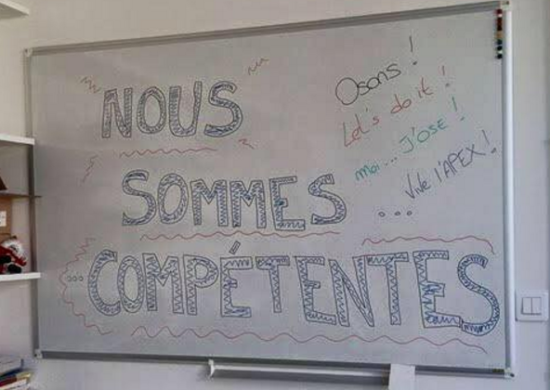 NOUS
SOMMES
... COMPÉTENTES
Osons !
Let's do it !
moi... j'ose !
Vive l'APEX !
...